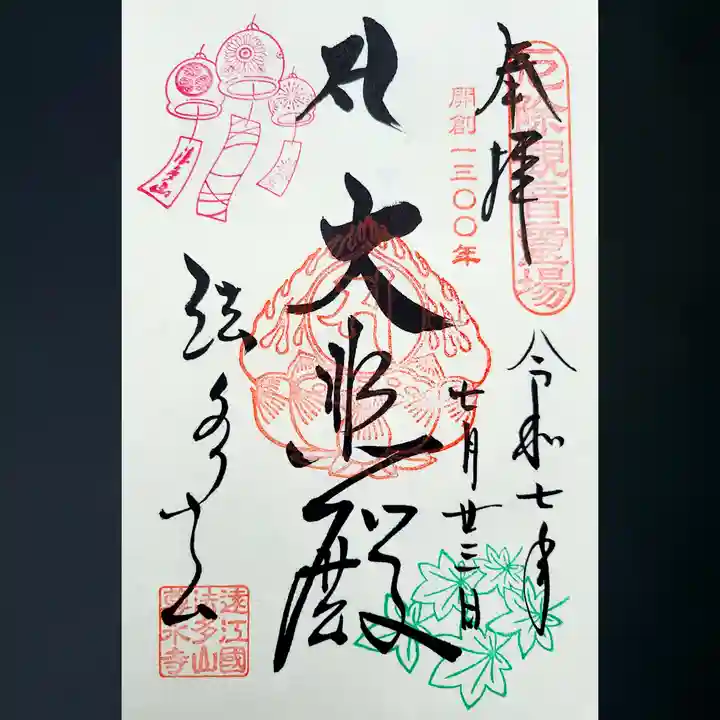 厄除観音霊場
奉拝
開創一三〇〇年
令和七年
七月廿三日
大悲殿
法多山
法多山
遠江國
法多山
尊永寺